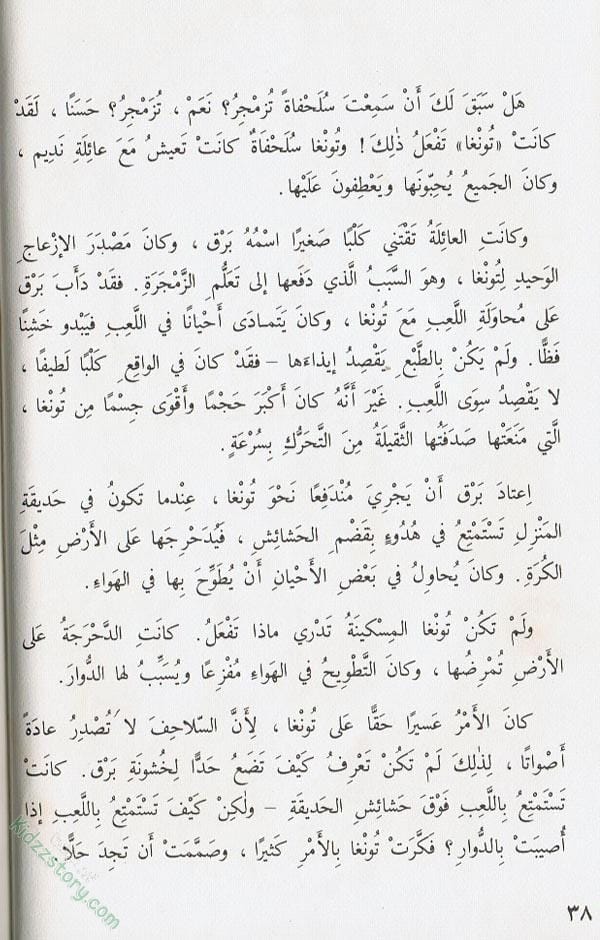 هَلْ سَبَقَ لَكَ أَنْ سَمِعْتَ سُلَحْفاةً تُزَمْجِرُ؟ نَعَمْ ، تُزَمْجِرُ؟ حَسَنًا ، لَقَدْ
كانَتْ «تُونْغا» تَفْعَلُ ذٰلِكَ! وتُونْغا سُلَحْفَاةٌ كانَتْ تَعيشُ مَعَ عائِلَةِ نَديم ،
وكانَ الجَميعُ يُحِبّونَها ويَعْطِفونَ عَلَيْها.
وكانَتِ العائِلَةُ تَقْتَني كَلْبًا صَغيرًا اسْمُهُ بَرْق ، وكانَ مَصْدَرَ الإزْعاجِ
الوَحيدِ لِتُونْغا ، وهوَ السَّبَبُ الَّذي دَفَعها إلى تَعَلُّمِ الزَّمْجَرَةِ. فقَدْ دَأَبَ بَرْق
عَلى مُحاوَلَةِ اللَّعِبِ مَعَ تُونْغا ، وكانَ يَتَمادَى أَحْيانًا في اللَّعِبِ فيَبْدو خَشِنًا
فَظًّا. ولَمْ يَكُنْ بِالطَّبْعِ يَقْصِدُ إيذاءَها – فقَدْ كانَ في الواقِعِ كَلْبًا لَطيفًا ،
لا يَقْصِدُ سِوَى اللَّعِبِ. غَيْرَ أَنَّهُ كانَ أَكْبَرَ حَجْمًا وأَقْوَى جِسْمًا مِن تُونْغا ،
الَّتي مَنَعَتْها صَدَفَتُها الثَّقيلَةُ مِنَ التَّحَرُّكِ بِسُرْعَةٍ.
اِعتادَ بَرْق أَنْ يَجْرِيَ مُنْدَفِعًا نَحْوَ تُونْغا ، عِنْدما تَكونُ في حَديقَةِ
المَنْزِلِ تَسْتَمْتِعُ في هُدُوءٍ بِقَضْمِ الحَشائِشِ ، فَيُدَحْرِجَها عَلى الأَرْضِ مِثْلَ
الكُرَةِ. وكانَ يُحاوِلُ في بَعْضِ الأَحْيانِ أَنْ يُطَوِّحَ بِها في الهَواءِ.
ولَمْ تَكُنْ تُونْغا المِسْكينَةُ تَدْري ماذا تَفْعَلُ. كانَتِ الدَّحْرَجَةُ عَلى
الأَرْضِ تُمْرِضُها ، وكانَ التَّطْويحُ في الهَواءِ مُفْزِعًا ويُسَبِّبُ لها الدُّوارَ.
كانَ الأَمْرُ عَسيرًا حَقًّا عَلى تُونْغا ، لِأَنَّ السَّلاحِفَ لا تُصْدِرُ عادَةً
أَصْواتًا ، لِذٰلِكَ لَمْ تَكُنْ تَعْرِفُ كَيْفَ تَضَعُ حَدًّا لِخُشونَةِ بَرْق. كانَتْ
تَسْتَمْتِعُ بِاللَّعِبِ فَوْقَ حَشائِشِ الحَديقَةِ – ولٰكِنْ كَيْفَ تَسْتَمْتِعُ بِاللَّعِبِ إذا
أُصيبَتْ بِالدُّوارِ؟ فكَّرَتْ تُونْغا بِالأَمْرِ كَثيرًا ، وصَمَّمَتْ أَن تَجِدَ حَلًّا
٣٨
Kidzzstory.com